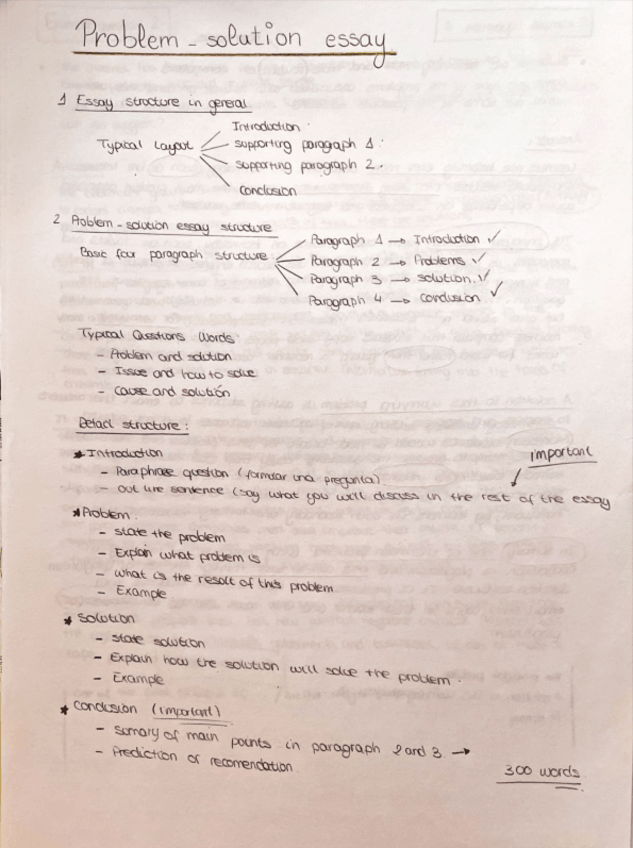 Problem - solution essay
1 Essay structure in general
Typical Layout
Introduction
supporting paragraph 1.
supporting paragraph 2.
conclusion
2 Problem - solution essay structure
Basic four paragraph structure
Paragraph 1 → Introduction ✓
Paragraph 2 → Problems ✓
Paragraph 3 → solution. ✓
Paragraph 4 → conclusion ✓
Typical Questions Words:
- Problem and solution
- Issue and how to solve
- cause and solution
Detail structure:
* Introduction
important
- Paraphrase question (formular una pregunta)
- out line sentence (say what you will discuss in the rest of the essay
* Problem.
- state the problem
- Explain what problem is
- what is the result of this problem.
- Example
* Solution
- state solution
- Explain how the solution will solve the problem.
- Example
* conclusion (important)
- Sumary of main points in paragraph 2 and 3 →
- Prediction or recomendation.
300 words.